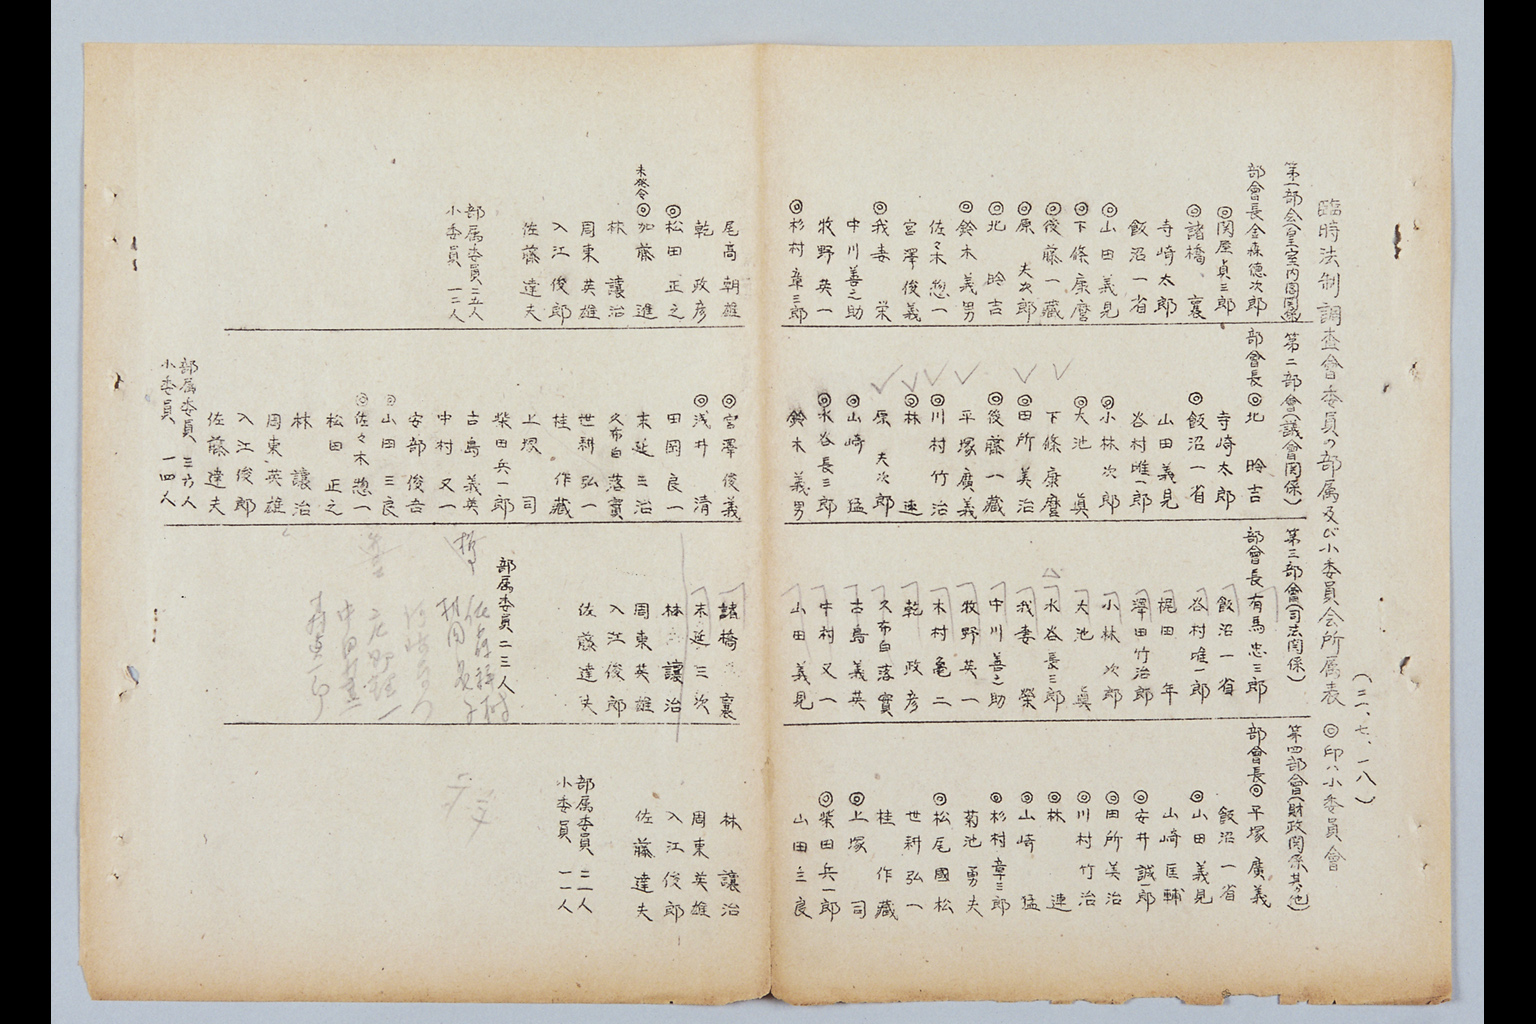 臨時法制調査會委員の部属及び小委員会所属表
(二一、七、一八)
◎印ハ小委員會
第一部会(皇室内閣関係)
部會長 金森德次郎
◎関屋貞三郎
◎諸橋襄
寺崎太郎
飯沼一省
◎山田義見
◎下條康麿
◎後藤一蔵
◎原夫次郎
◎北昤吉
◎鈴木義男
佐々木惣一
宮澤俊義
◎我妻栄
中川善之助
牧野英一
◎杉村章三郎
尾高朝雄
乾政彦
◎松田正之
未発令◎加藤進
林讓治
周東英雄
入江俊郎
佐藤達夫
部属委員二五人
小委員一二人
第二部會(議會関係)
部會長◎北昤吉
寺崎太郎
◎飯沼一省
山田義見
谷村唯一郎
◎小林次郎
◎大池眞
下條康麿
◎田所美治
◎後藤一蔵
平塚廣義
◎川村竹治
◎林連
原夫次郎
◎山崎猛
◎水谷長三郎
鈴木義男
◎宮澤俊義
◎浅井清
田岡良一
末延三治
久布白落實
世耕弘一
桂作蔵
上塚司
柴田兵一郎
古島義英
中村又一
安部俊吾
◎山田三良
◎佐々木惣一
松田正之
林讓治
周東英雄
入江俊郎
佐藤達夫
部属委員三六人
小委員一四人
第三部會(司法関係)
部會長 有馬忠三郎
飯沼一省
谷村唯一郎
梶田年
澤田竹治郎
小林次郎
大池眞
水谷長三郎
我妻榮
中川善之助
牧野英一
木村亀二
乾政彦
久布白落實
古島義英
中村又一
山田義見
諸橋襄
末延三次
林讓治
周東英雄
入江俊郎
佐藤達夫
部属委員二三人
第四部會(財政関係其ノ他)
部會長◎平塚廣義
飯沼一省
◎山田義見
山崎匡輔
◎安井誠一郎
◎田所美治
◎川村竹治
◎林連
◎山崎猛
◎杉村章三郎
菊池勇夫
◎松尾國松
世耕弘一
桂作蔵
◎上塚司
◎柴田兵一郎
山田三良
林讓治
周東英雄
入江俊郎
佐藤達夫
部属委員二一人
小委員一一人